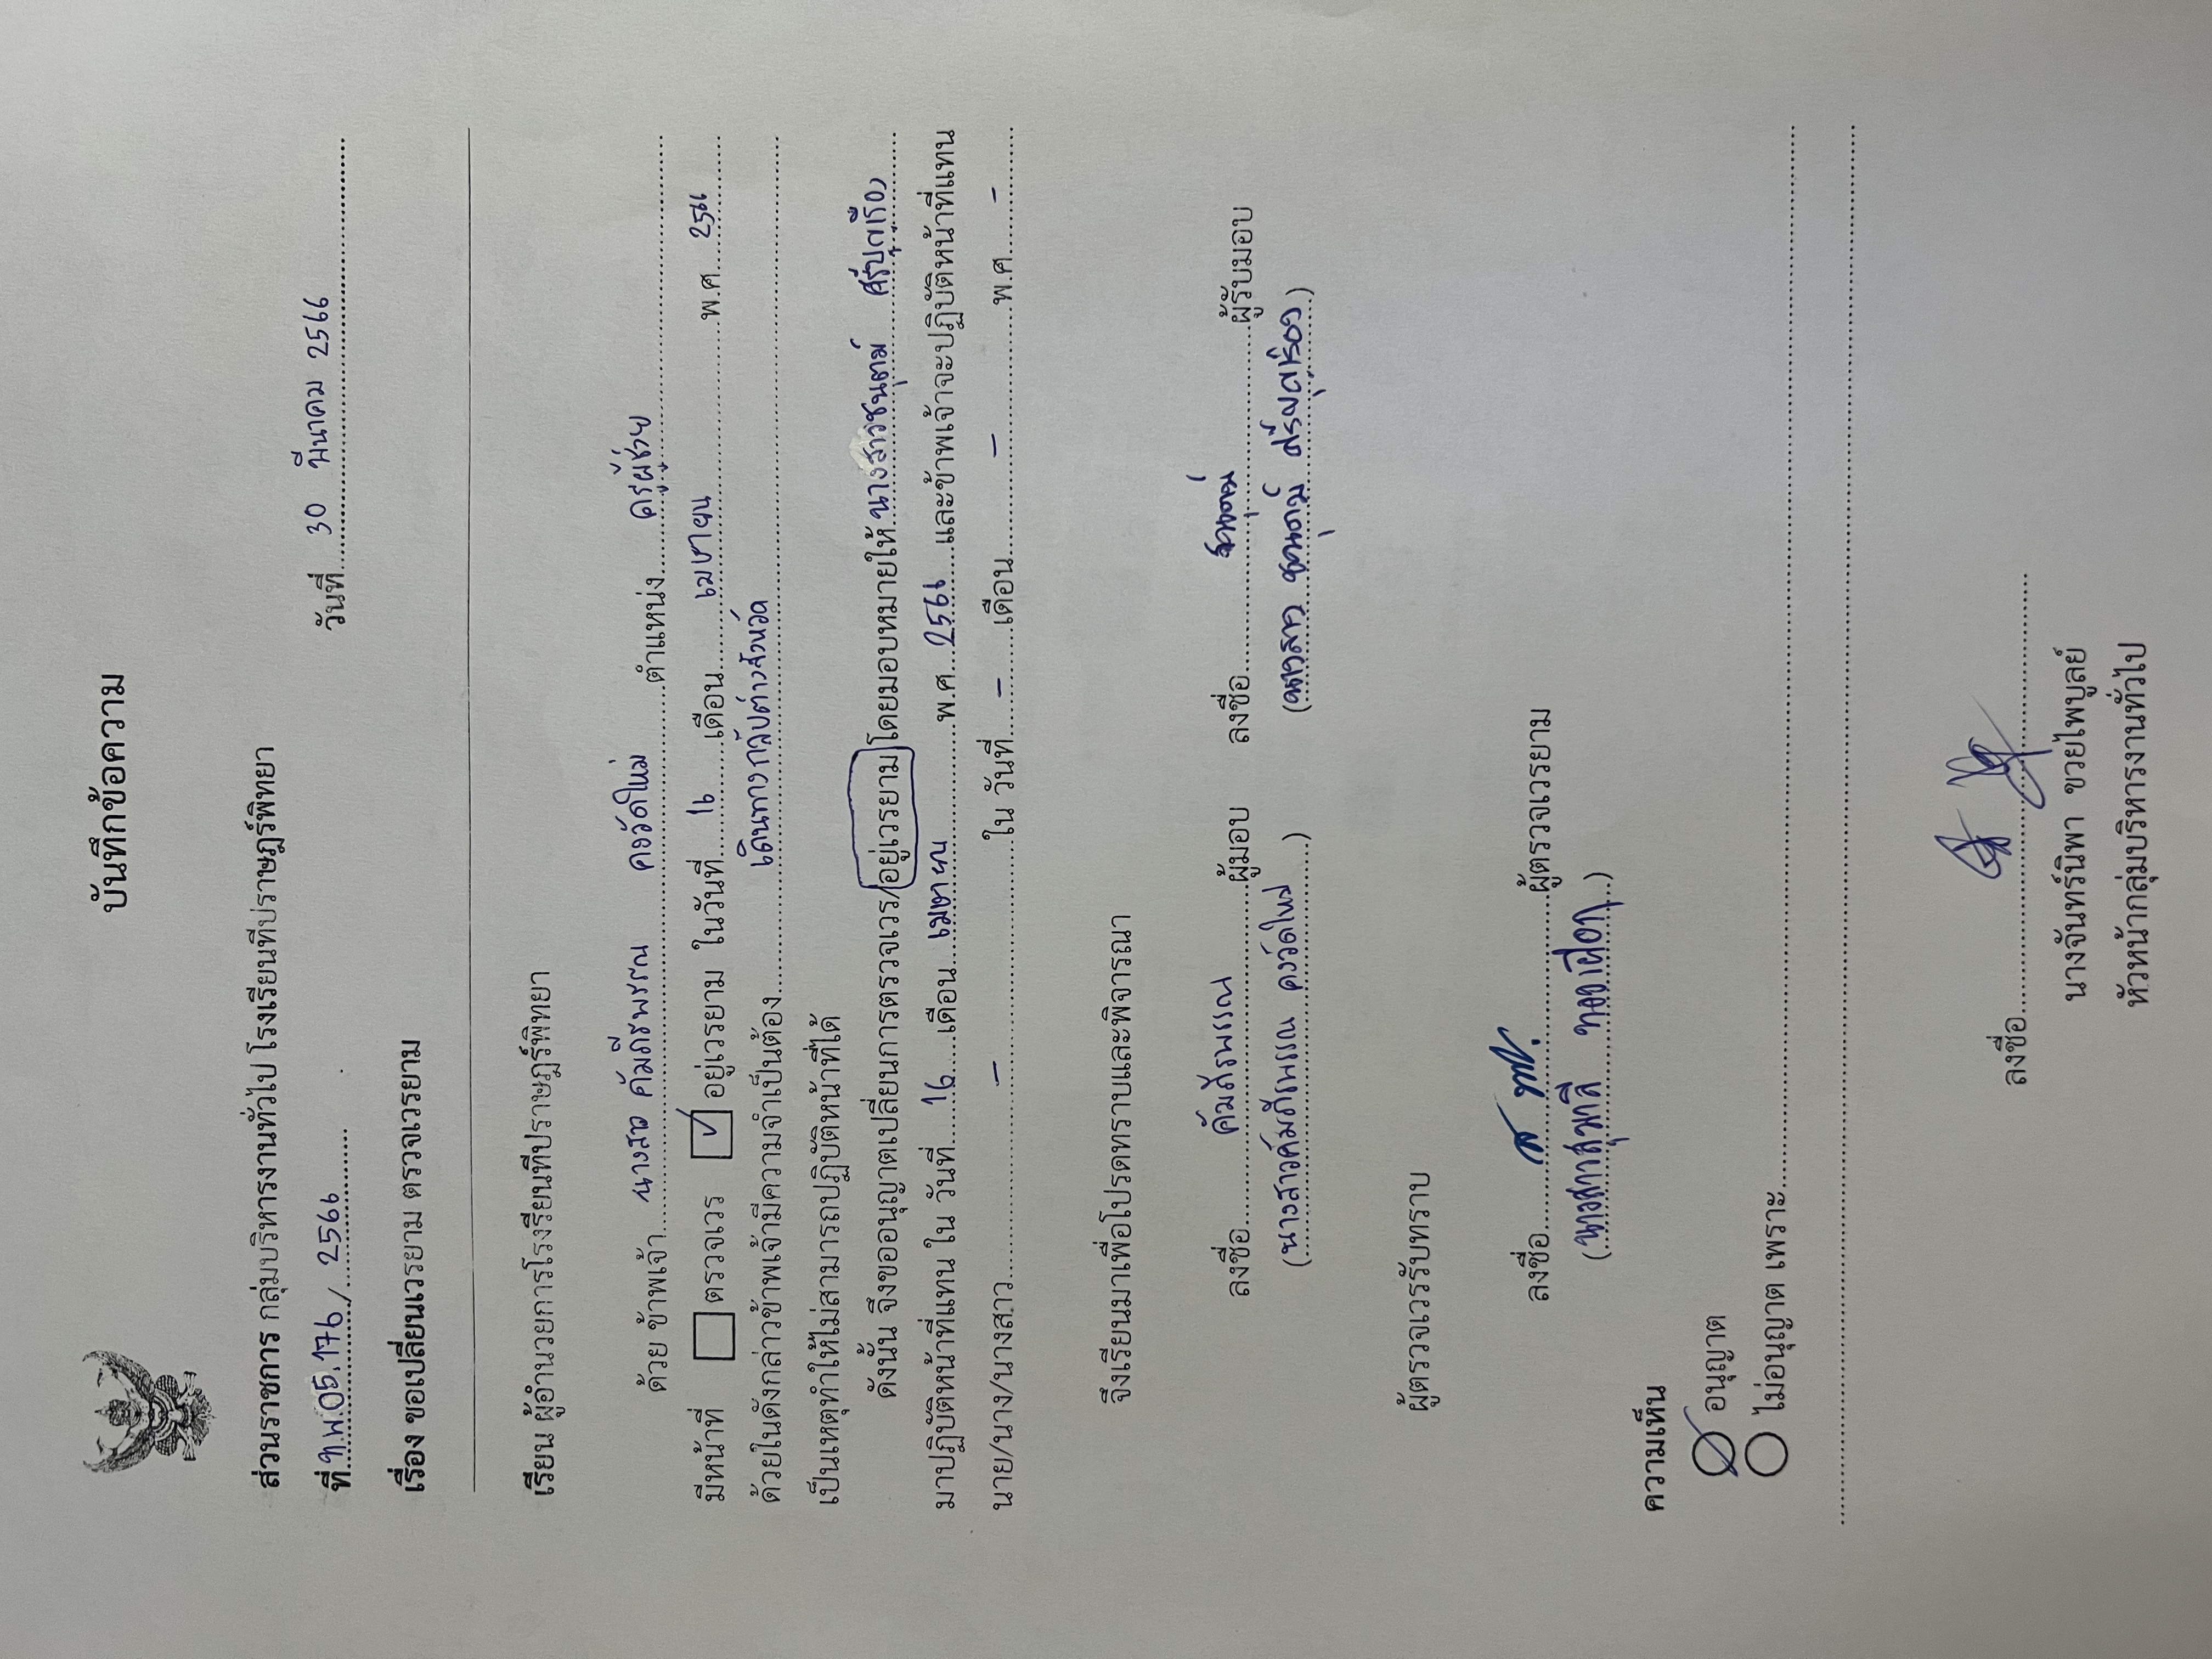 บันทึกข้อความ
ส่วนราชการ กลุ่มบริหารงานทั่วไป โรงเรียนทีปราษฎร์พิทยา
ที่ ท.พ.05.176 / 2566 วันที่ 30 มีนาคม 2566
เรื่อง ขอเปลี่ยนเวรยาม ตรวจเวรยาม
เรียน ผู้อำนวยการโรงเรียนทีปราษฎร์พิทยา
ด้วย ข้าพเจ้า นางสาว คัมภีรพรรณ คงวัดใหม่ ตำแหน่ง ครูผู้ช่วย
มีหน้าที่ ตรวจเวร ✓ อยู่เวรยาม ในวันที่ 16 เดือน เมษายน พ.ศ. 2566
ด้วยในดังกล่าวข้าพเจ้ามีความจำเป็นต้อง เดินทางกลับต่างจังหวัด
เป็นเหตุทำให้ไม่สามารถปฏิบัติหน้าที่ได้
ดังนั้น จึงขออนุญาตเปลี่ยนการตรวจเวร/อยู่เวรยาม โดยมอบหมายให้ นางสาวชนุตม์
มาปฏิบัติหน้าที่แทน ใน วันที่ 16 เดือน เมษายน พ.ศ. 2566 และข้าพเจ้าจะปฏิบัติหน้าที่แทน
นาย/นาง/นางสาว - ใน วันที่ - เดือน - พ.ศ. -
จึงเรียนมาเพื่อโปรดทราบและพิจารณา
ลงชื่อ คัมภีรพรรณ ผู้มอบ ลงชื่อ ชนุตม์ ผู้รับมอบ
(นางสาวคัมภีรพรรณ คงวัดใหม่) (นางสาว ชนุตม์)
ผู้ตรวจเวรรับทราบ
ลงชื่อ ผู้ตรวจเวรยาม
(นางสาวสุมาลี ทองเผือก)
ความเห็น
อนุญาต
ไม่อนุญาต เพราะ
ลงชื่อ
นางจันทร์นิพา ขวยไพบูลย์
หัวหน้ากลุ่มบริหารงานทั่วไป